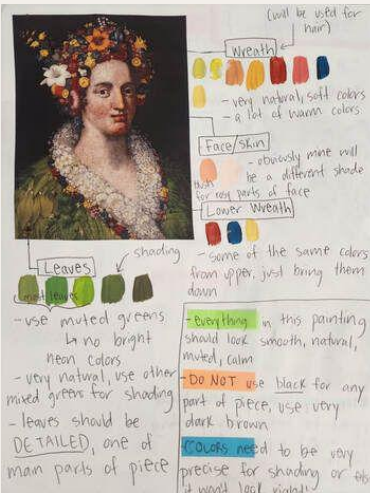 (will be used for
hair)
Wreath
- very natural, soft colors
- a lot of warm colors
Face/Skin
- obviously mine will
be a different shade
blush
for rosy parts of face
Lower Wreath
- some of the same colors
from upper, just bring them
down
shading
Leaves
most leaves
- use muted greens
↳ no bright
neon colors
- very natural, use other
muted greens for shading
- leaves should be
DETAILED, one of
main parts of piece
- everything in this painting
should look smooth, natural,
muted, calm
- DO NOT use black for any
part of piece, use very
dark brown
COLORS need to be very
precise for shading or
it won't look right!